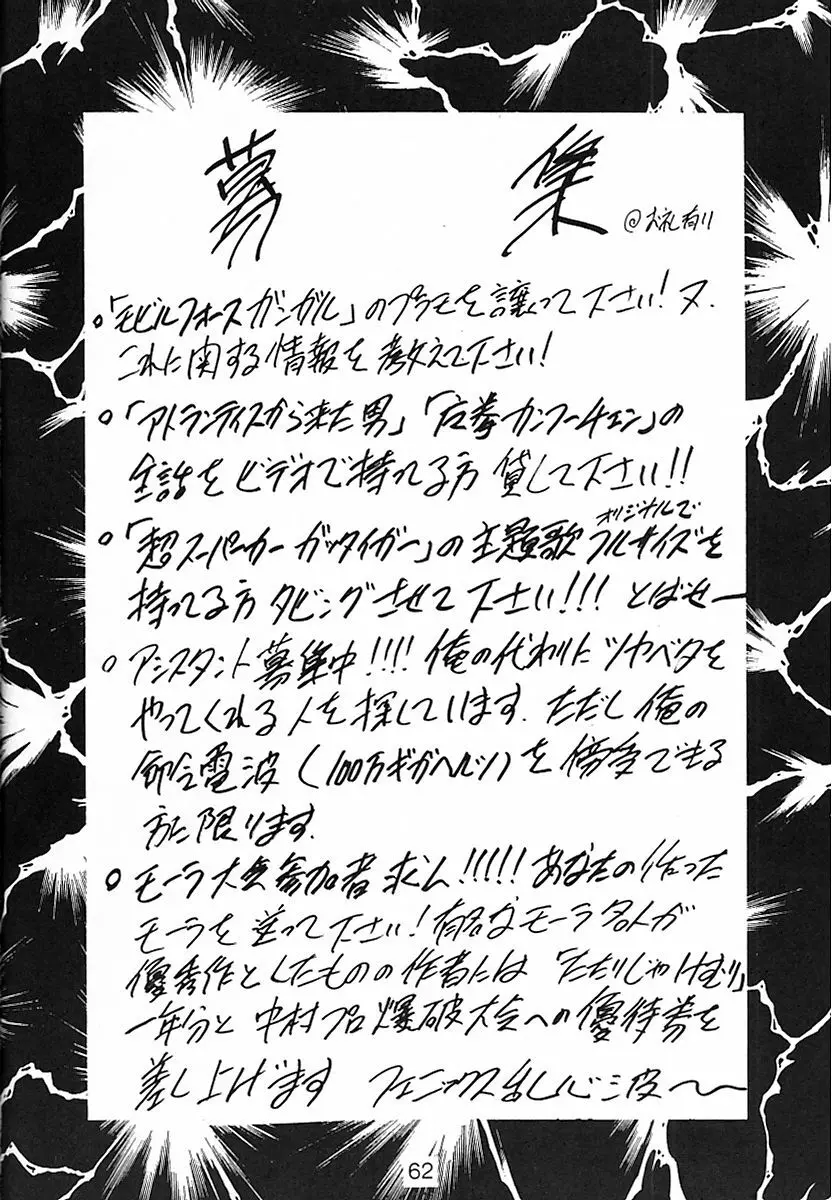 募集
@お礼有り
○「モビルフォースガンガル」のプラモを譲って下さい!又、
これに関する情報を教えて下さい!
○「アトランティスから来た男」「広拳カンフーチェン」の
全話をビデオで持ってる方貸して下さい!!
○「超スーパーカーガッタイガー」の主題歌オリジナルでフルサイズを
持ってる方ダビングさせて下さい!!! とばせー
○アシスタント募集中!!!! 俺の代わりにツヤベタを
やってくれる人を探しています。ただし俺の
命令電波(100万ギガヘルツ)を傍受できる
方に限ります。
○モーラ大会参加者求ム!!!!! あなたの作った
モーラを塗って下さい!有名なモーラ名人が
優秀作としたものの作者には「ただりじゃけむり」
一年分と中村プロ爆破大会への優待券を
差し上げます フェニックス乱心波〜〜
62